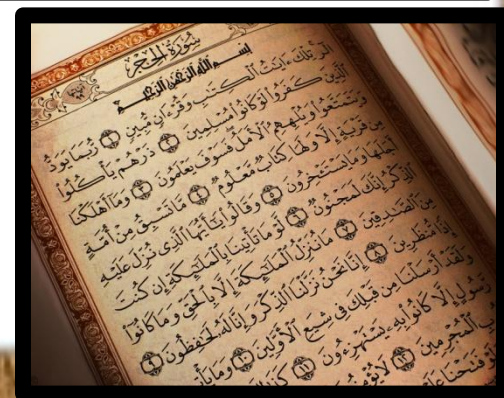 سُورَةُ الحِجْرِ
بِسْمِ اللَّهِ الرَّحْمَٰنِ الرَّحِيمِ
الٓر تِلْكَ ءَايَٰتُ ٱلْكِتَٰبِ وَقُرْءَانٍ مُّبِينٍ ١ رُّبَمَا يَوَدُّ
ٱلَّذِينَ كَفَرُوا۟ لَوْ كَانُوا۟ مُسْلِمِينَ ٢ ذَرْهُمْ يَأْكُلُوا۟
وَيَتَمَتَّعُوا۟ وَيُلْهِهِمُ ٱلْأَمَلُ فَسَوْفَ يَعْلَمُونَ ٣ وَمَآ أَهْلَكْنَا
مِن قَرْيَةٍ إِلَّا وَلَهَا كِتَابٌ مَّعْلُومٌ ٤ مَّا تَسْبِقُ مِنْ أُمَّةٍ
أَجَلَهَا وَمَا يَسْتَـْٔخِرُونَ ٥ وَقَالُوا۟ يَٰٓأَيُّهَا ٱلَّذِى نُزِّلَ عَلَيْهِ
ٱلذِّكْرُ إِنَّكَ لَمَجْنُونٌ ٦ لَّوْ مَا تَأْتِينَا بِٱلْمَلَٰٓئِكَةِ إِن كُنتَ
مِنَ ٱلصَّٰدِقِينَ ٧ مَا نُنَزِّلُ ٱلْمَلَٰٓئِكَةَ إِلَّا بِٱلْحَقِّ وَمَا كَانُوٓا۟
إِذًا مُّنظَرِينَ ٨ إِنَّا نَحْنُ نَزَّلْنَا ٱلذِّكْرَ وَإِنَّا لَهُۥ لَحَٰفِظُونَ ٩
وَلَقَدْ أَرْسَلْنَا مِن قَبْلِكَ فِى شِيَعِ ٱلْأَوَّلِينَ ١٠ وَمَا
رَّسُولٍ إِلَّا كَانُوا۟ بِهِۦ يَسْتَهْزِءُونَ ١١
ٱلْمُجْرِمِينَ ١٢ لَا
فَتَحْنَا